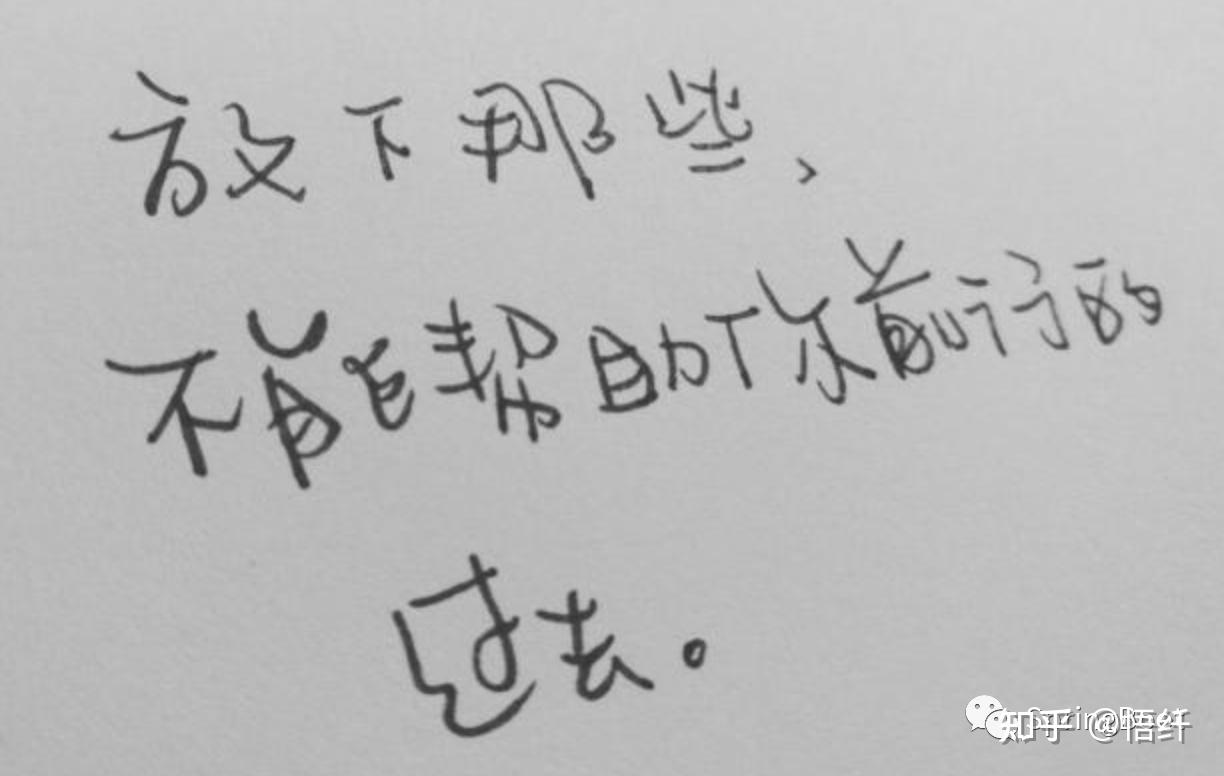 放下那些、
不能帮助你前行的
过去。
知乎 @悟纤